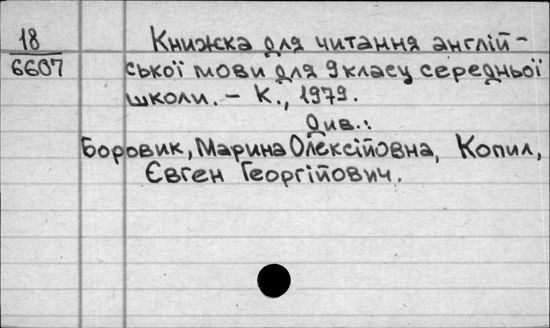 18
6607
Книжка для читання англій-
ської мови для 9 класу середньої
школи. – К., 1979.
Див.:
Боровик, Марина Олексіївна, Копил,
Євген Георгійович.